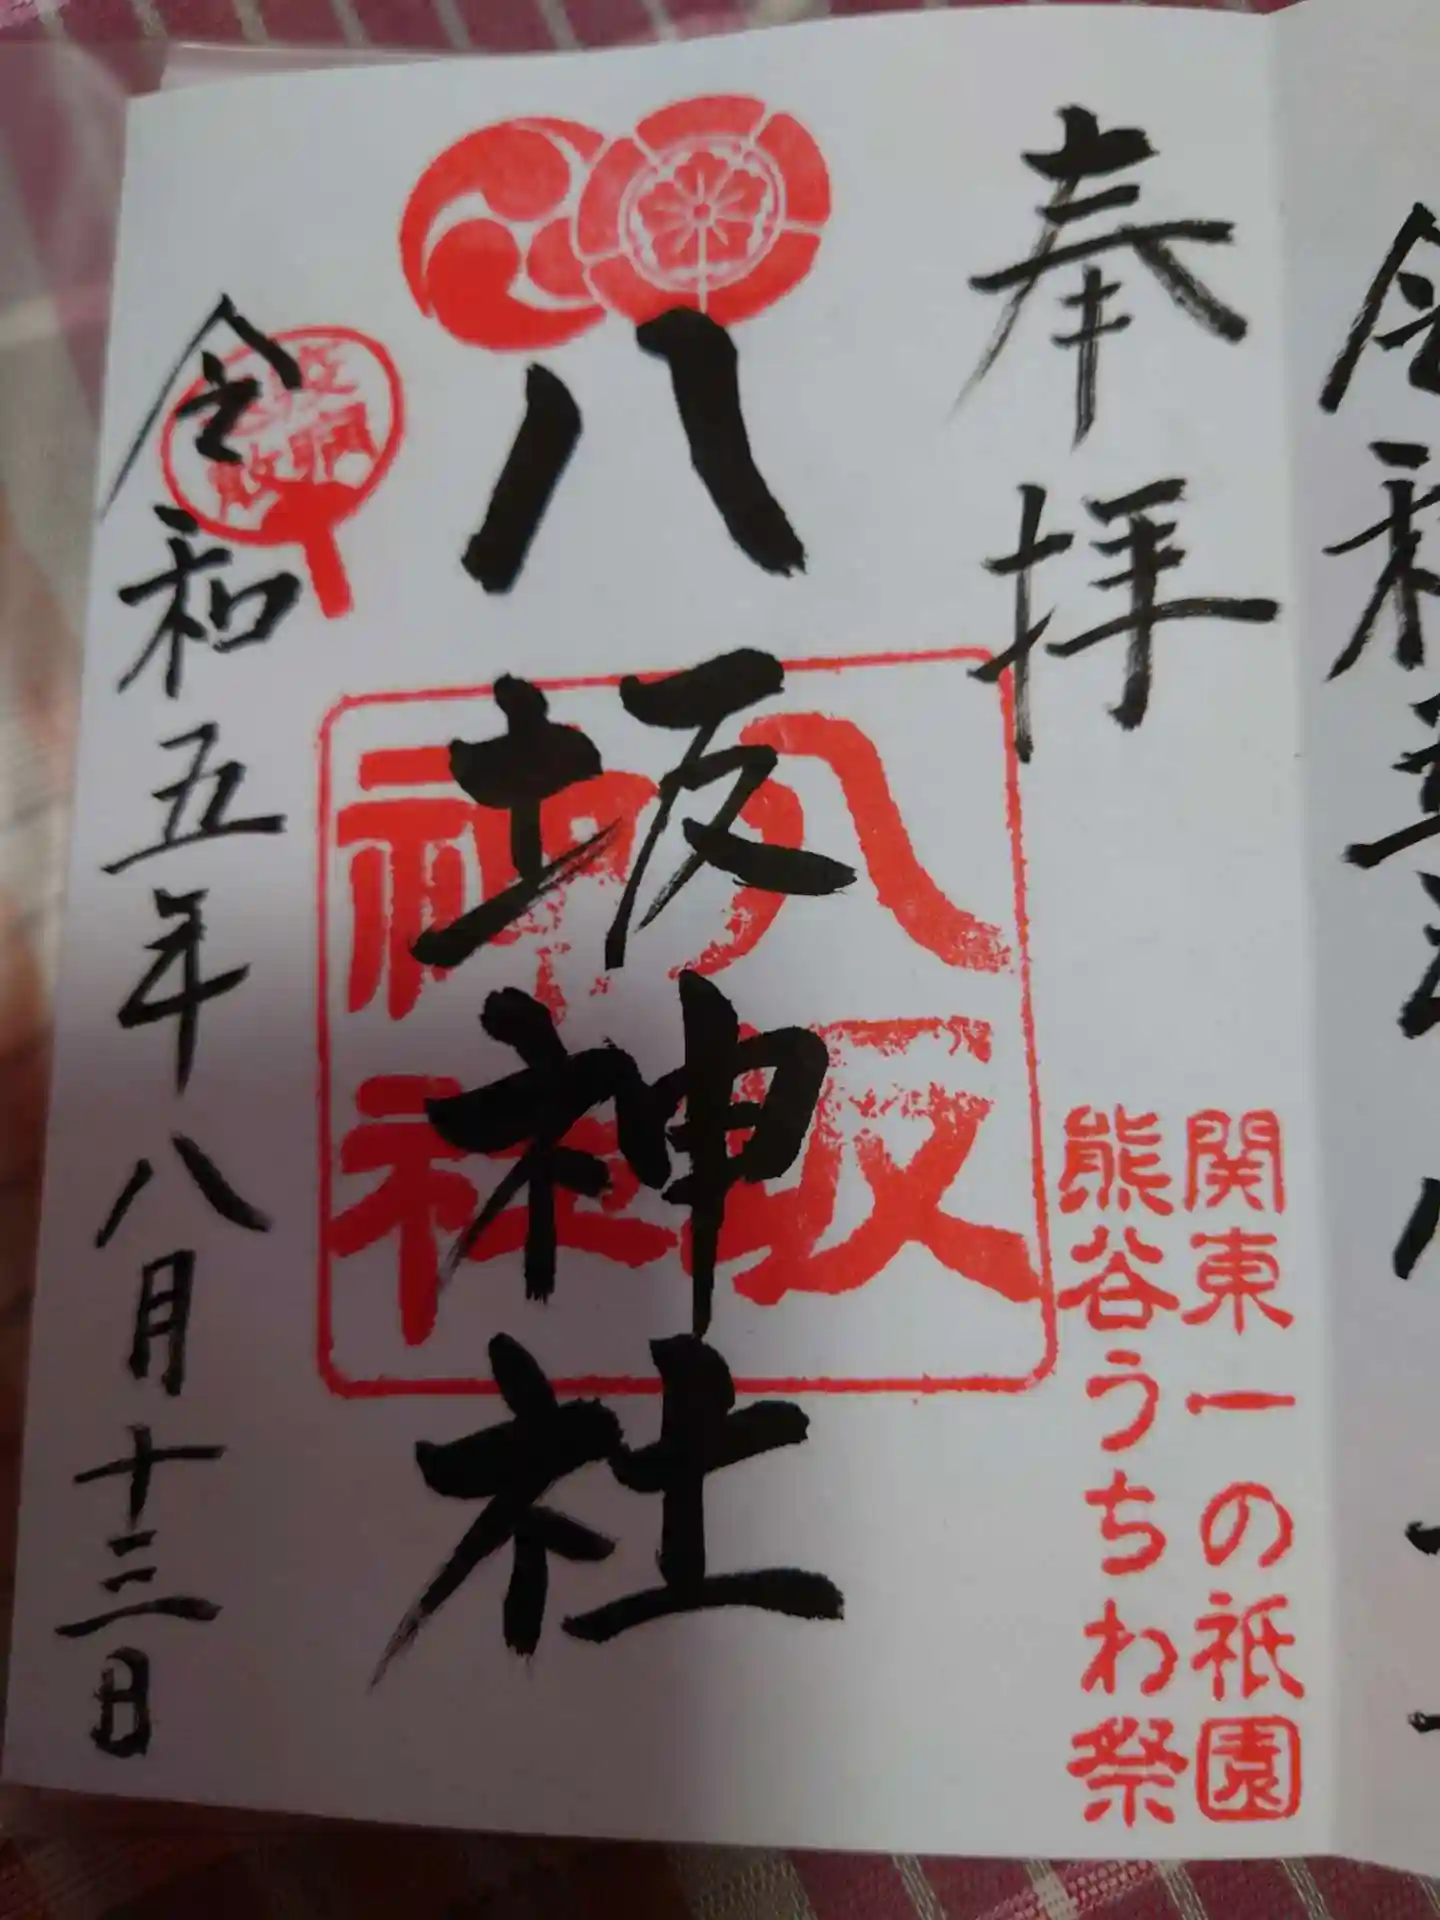 奉拝
関東一の祇園
熊谷うちわ祭
八坂神社
八坂
神社
令和五年八月十三日
令和五年